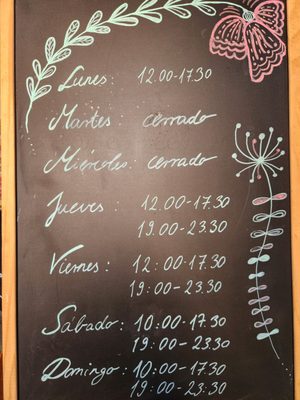 Lunes: 12.00-17.30
Martes: cerrado
Miércoles: cerrado
Jueves: 12.00-17.30
19.00-23.30
Viernes: 12:00-17.30
19:00-23.30
Sábado: 10:00-17.30
19:00-23.30
Domingo: 10:00-17.30
19:00-23:30